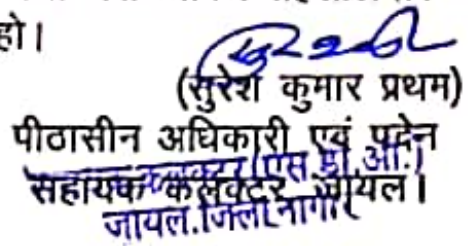 हो।
(सुरेश कुमार प्रथम)
पीठासीन अधिकारी एवं पदेन
सहायक कलक्टर, जायल।
कलक्टर (एस.डी.ओ.)
जायल.जिला नागौर